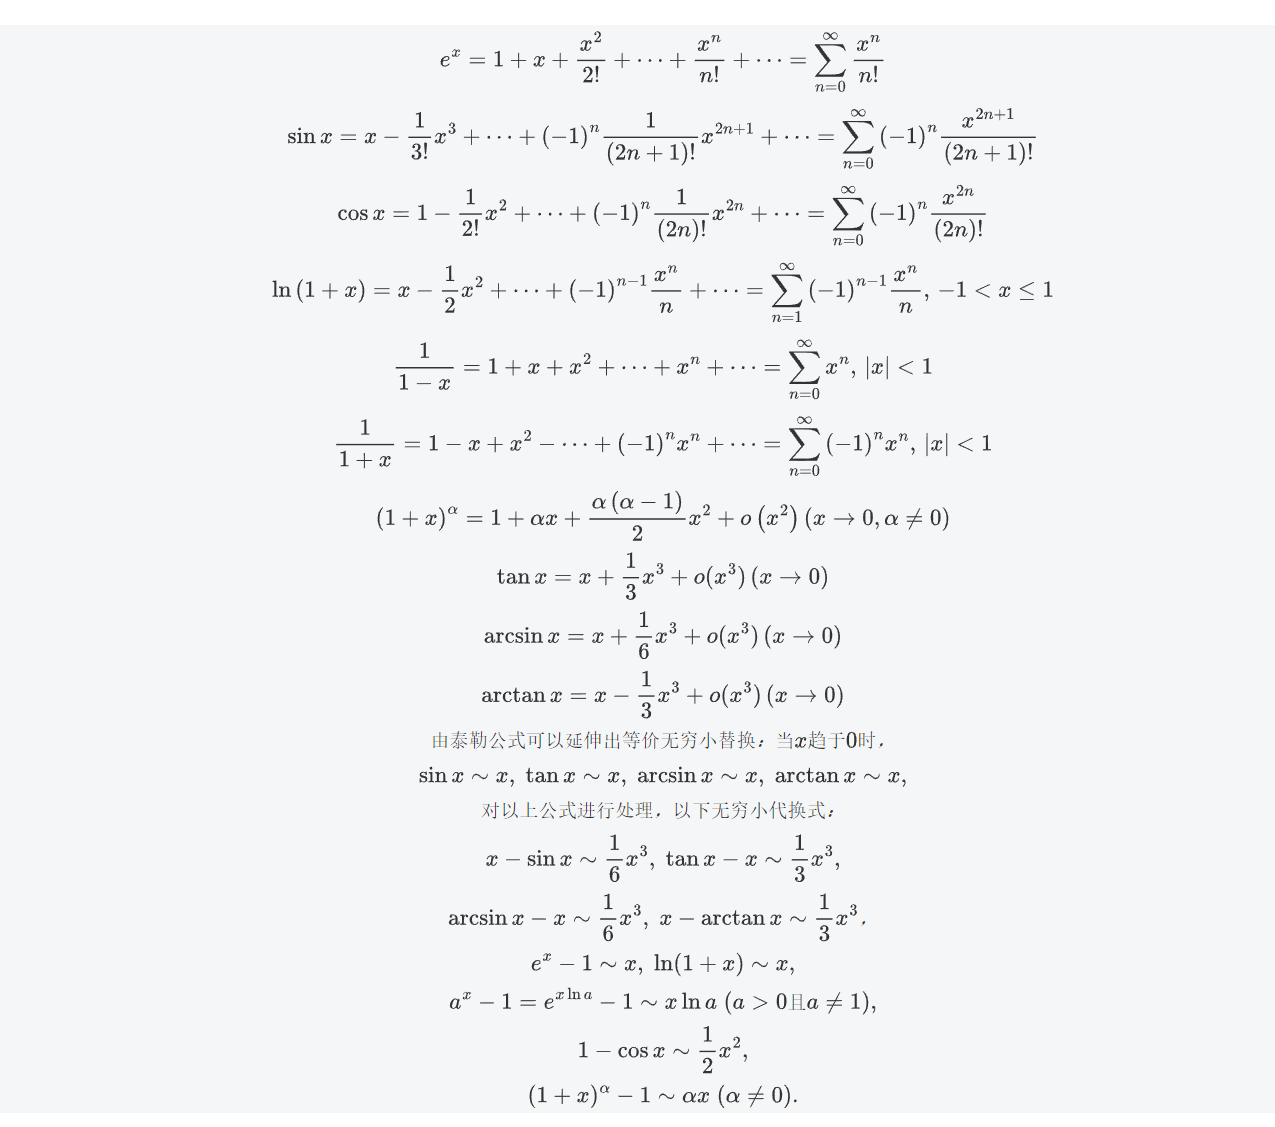 $e^x = 1 + x + \frac{x^2}{2!} + \cdots + \frac{x^n}{n!} + \cdots = \sum_{n=0}^{\infty} \frac{x^n}{n!}$
$\sin x = x - \frac{1}{3!}x^3 + \cdots + (-1)^n \frac{1}{(2n+1)!}x^{2n+1} + \cdots = \sum_{n=0}^{\infty} (-1)^n \frac{x^{2n+1}}{(2n+1)!}$
$\cos x = 1 - \frac{1}{2!}x^2 + \cdots + (-1)^n \frac{1}{(2n)!}x^{2n} + \cdots = \sum_{n=0}^{\infty} (-1)^n \frac{x^{2n}}{(2n)!}$
$\ln(1+x) = x - \frac{1}{2}x^2 + \cdots + (-1)^{n-1} \frac{x^n}{n} + \cdots = \sum_{n=1}^{\infty} (-1)^{n-1} \frac{x^n}{n}, -1 < x \leq 1$
$\frac{1}{1-x} = 1 + x + x^2 + \cdots + x^n + \cdots = \sum_{n=0}^{\infty} x^n, |x| < 1$
$\frac{1}{1+x} = 1 - x + x^2 - \cdots + (-1)^n x^n + \cdots = \sum_{n=0}^{\infty} (-1)^n x^n, |x| < 1$
$(1+x)^\alpha = 1 + \alpha x + \frac{\alpha(\alpha-1)}{2}x^2 + o(x^2) (x \to 0, \alpha \neq 0)$
$\tan x = x + \frac{1}{3}x^3 + o(x^3) (x \to 0)$
$\arcsin x = x + \frac{1}{6}x^3 + o(x^3) (x \to 0)$
$\arctan x = x - \frac{1}{3}x^3 + o(x^3) (x \to 0)$
由泰勒公式可以延伸出等价无穷小替换：当$x$趋于0时，
$\sin x \sim x, \tan x \sim x, \arcsin x \sim x, \arctan x \sim x,$
对以上公式进行处理，以下无穷小代换式：
$x - \sin x \sim \frac{1}{6}x^3, \tan x - x \sim \frac{1}{3}x^3,$
$\arcsin x - x \sim \frac{1}{6}x^3, x - \arctan x \sim \frac{1}{3}x^3$，
$e^x - 1 \sim x, \ln(1+x) \sim x,$
$a^x - 1 = e^{x \ln a} - 1 \sim x \ln a (a > 0$且$a \neq 1),$
$1 - \cos x \sim \frac{1}{2}x^2,$
$(1+x)^\alpha - 1 \sim \alpha x (\alpha \neq 0).$